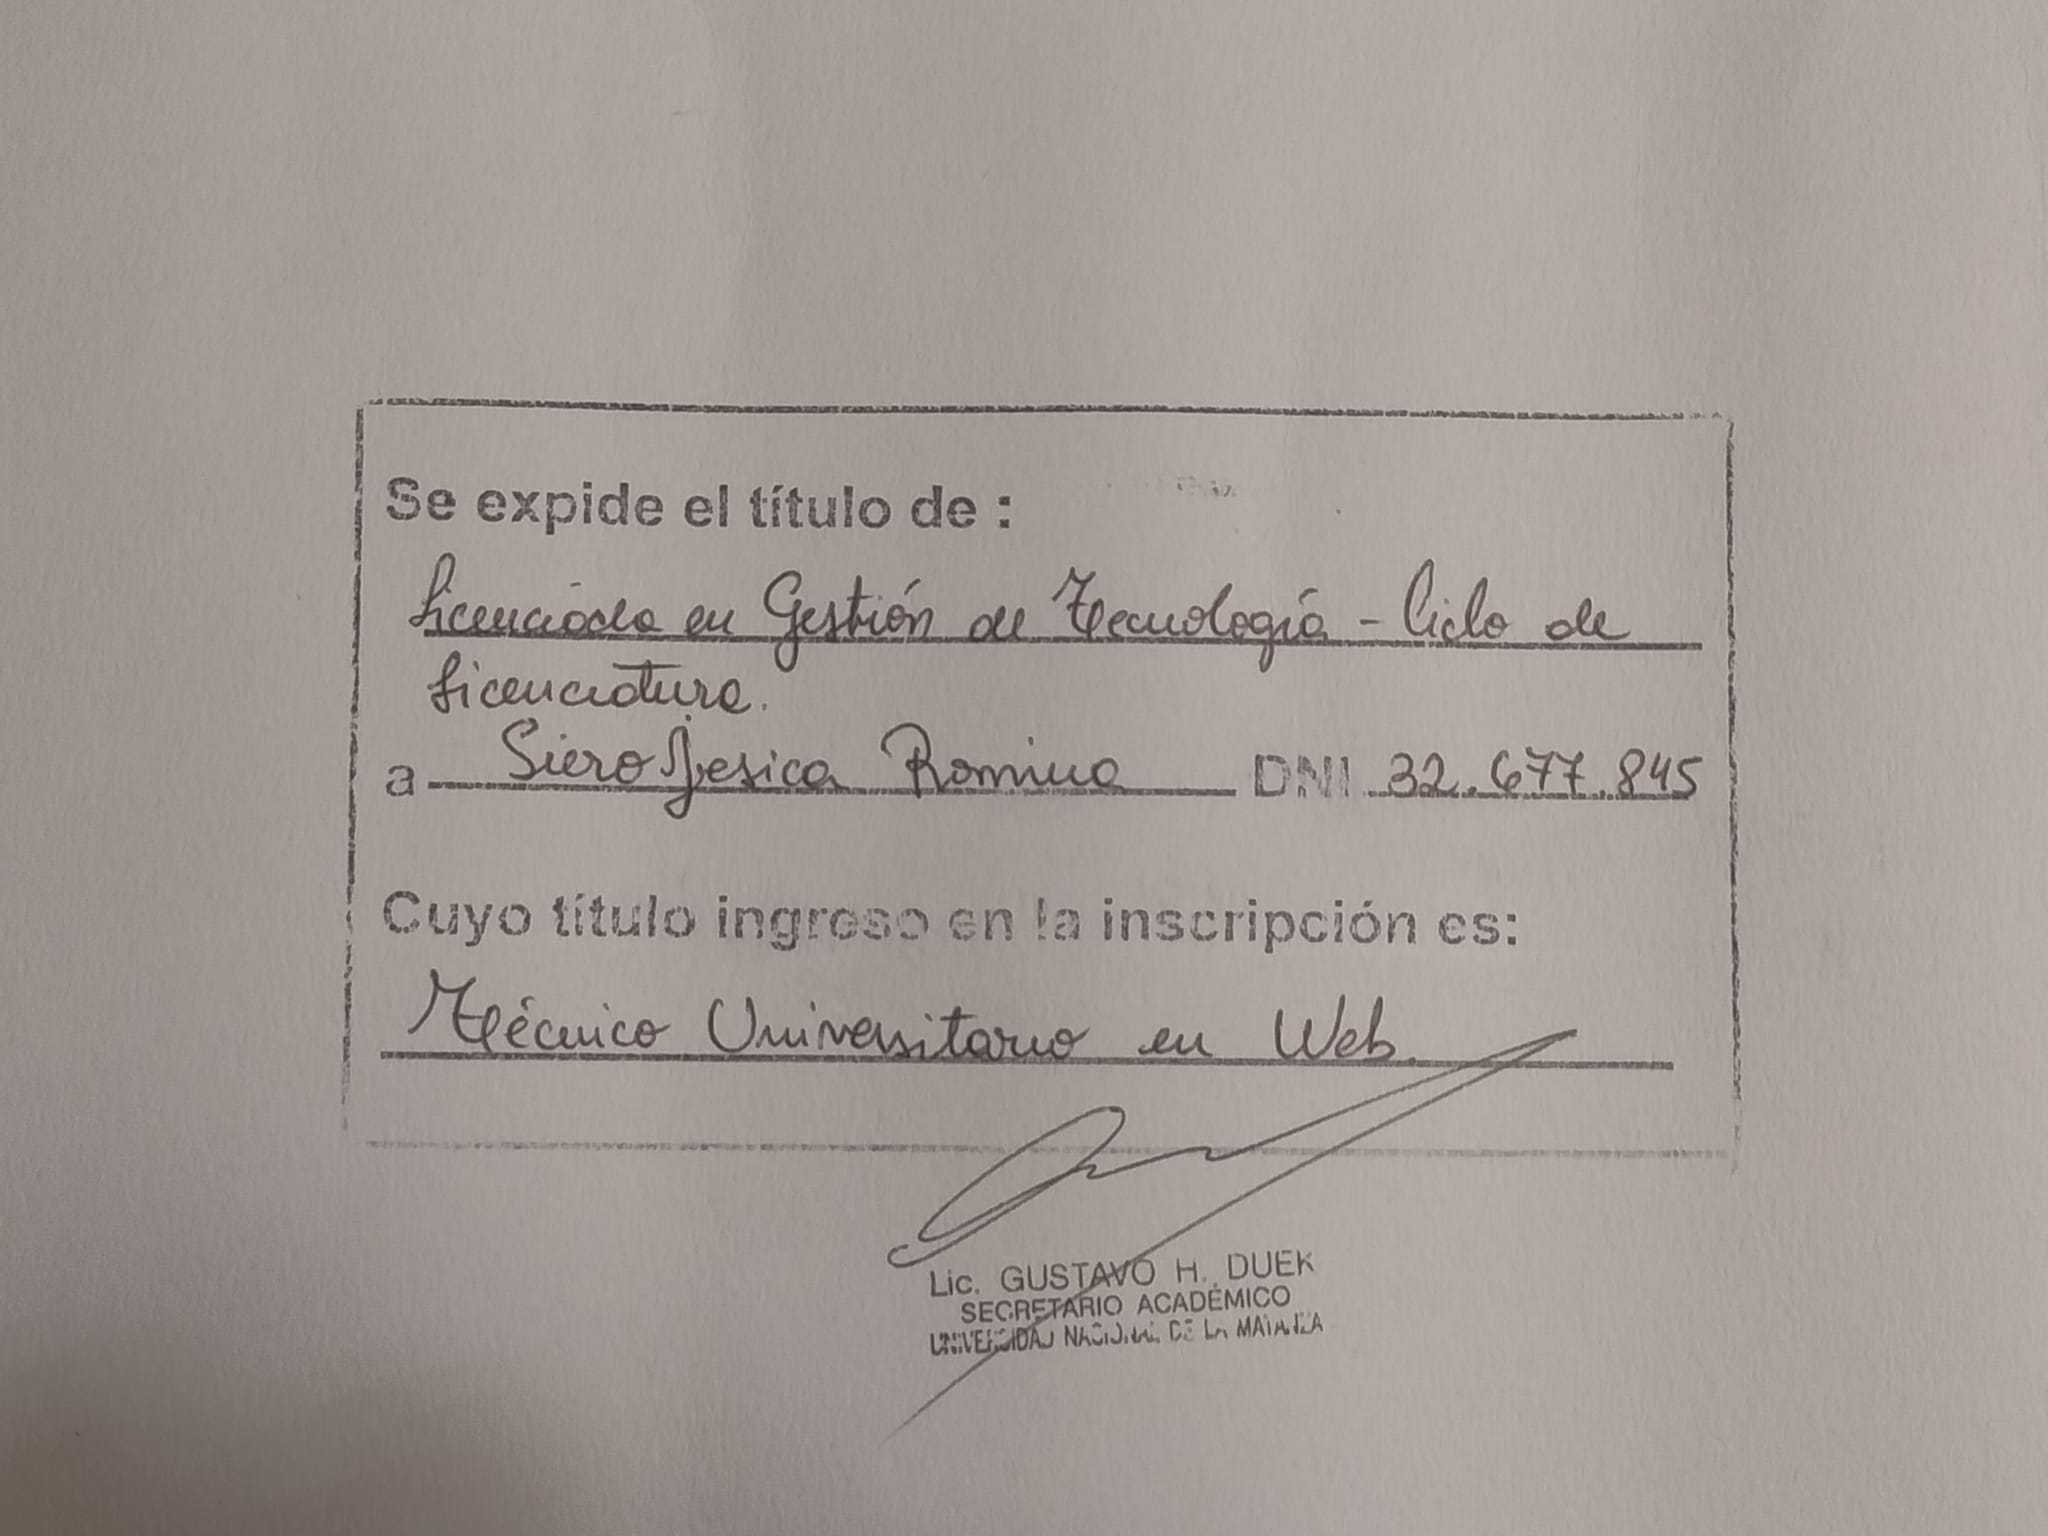 Se expide el título de :
Licenciada en Gestión de Tecnología - Ciclo de
Licenciatura.
a Siero Jesica Romina DNI 32.677.845
Cuyo título ingreso en la inscripción es:
Técnico Universitario en Web.
Lic. GUSTAVO H. DUEK
SECRETARIO ACADÉMICO
UNIVERSIDAD NACIONAL DE LA MATANZA